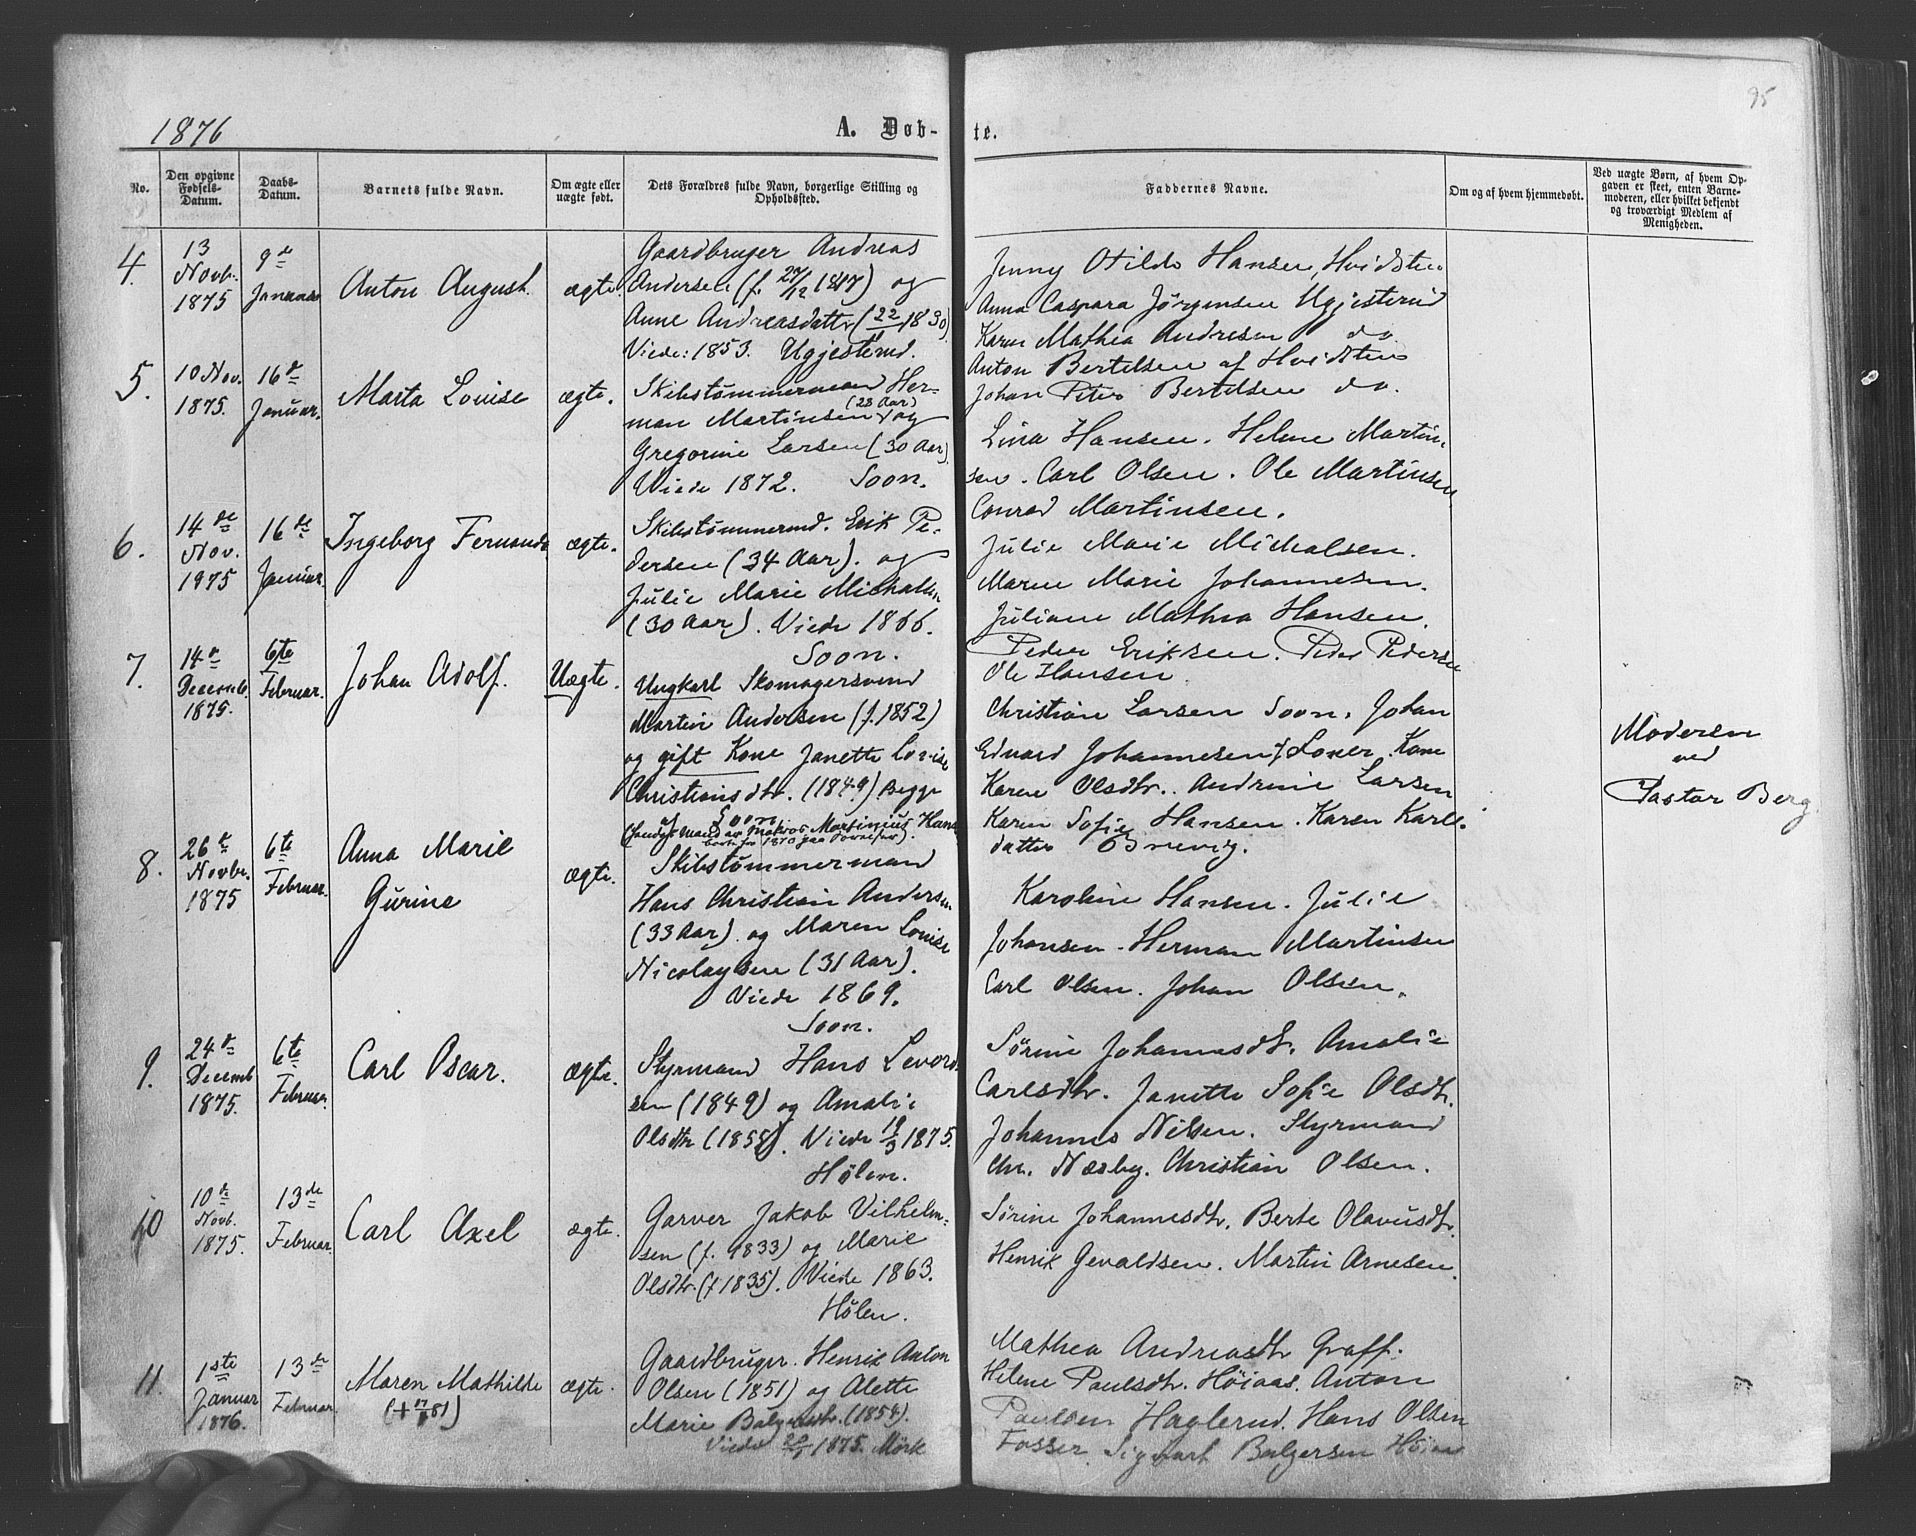 95
1876
A. Døb-
te.
No.
Den opgivne Fødsels-Datum.
Daabs-Datum.
Barnets fulde Navn.
Om ægte eller uægte født.
Dets Forældres fulde Navn, borgerlige Stilling og Opholdssted.
Faddernes Navne.
Om og af hvem hjemmedøbt.
Ved uægte Børn, af hvem Op-
gaven er skeet, enten Barne-
moderen, eller hvilket bekjendt
og troværdigt Medlem af
Menigheden.
4.
13
Novb.
1875
9de
Januar
Anton August.
ægte.
Gaardbruger Andreas
Andersen (f. 27/12 1817) og
Anne Andreasdatter (22/1 1830)
Viede: 1853. Ugjesterud.
Jenny Otilde Hansen, Hvidsten
Anna Caspara Jørgensen Ugjesterud
Karen Mathea Andresen do
Anton Bertelsen af Hvidsten
Johan Peter Bertelsen do.
5.
10 Nov.
1875.
16de
Januar.
Marta Louise
ægte.
Skibstømmermand Her-
man Martinsen (23 Aar) og
Gregorine Larsen (30 Aar)
Viede 1872. Soon.
Lina Hansen. Helene Martin-
sen. Carl Olsen. Ole Martinsen
Conrad Martinsen.
6.
14de
Nov.
1975
16de
Januar.
Ingeborg Fernanda
ægte.
Skibstømmermd. Erik Pe-
dersen (34 Aar). og
Julie Marie Michalsen
(30 Aar). Viede 1866.
Soon.
Julie Marie Michalsen.
Maren Marie Johannesen.
Juliane Mathea Hansen.
Peder Eriksen. Peder Pedersen
Ole Hansen
7.
14de
Decemb.
1875.
6te
Februar.
Johan Adolf.
Uægte.
Ungkarl Skomagersvend
Martin Andersen (f. 1852)
og gift Kone Janette Lovise
Christiansdtr. (1849) Begge
af Soon
Martinius Hans
Christian Larsen Soon. Johan
Edvard Johannesen, Loser. Kone
Karen Olsdtr. Andrine Larsen
Karen Sofie Hansen. Karen Karls-
datter Brevig.
Moderen
ved
Pastor Berg
8.
26de
Novbr.
1875
6te
Februar.
Anna Marie
Gurine
ægte.
Skibstømmermand
Hans Christian Andersen
(33 Aar). og Maren Louise
Nicolaysen (31 Aar).
Viede 1869.
Soon.
Karoline Hansen. Julie
Johansen. Herman Martinsen
Carl Olsen. Johan Olsen.
9.
24de
Decemb
1875.
6te
Februar
Carl Oscar.
ægte.
Styrmand Hans Levord-
sen (1849) og Amalie
Olsdtr (1855). Viede 19/3 1875.
Hølen.
Sørine Johannesdtr. Amalie
Carlsdtr. Janette Sofie Olsdtr.
Johannes Nilsen. Styrmand
Chr. Næsby. Christian Olsen.
10
10de
Novb.
1875.
13de
Februar
Carl Axel
ægte.
Garver Jakob Vilhelm-
sen (f. 1833) og Marie
Olsdtr. (f 1835). Viede 1863.
Hølen.
Sørine Johannesdtr. Berte Olavusdtr.
Henrik Gevaldsen. Martin Arnesen.
11.
1ste
Januar
1876.
13de
Februar
Maren Mathilde
ægte.
Gaardbruger. Henrik Anton
Olsen (1851) og Alette
Marie Balgersdtr. (1854).
Viede 1875. Mørk
Mathea Andreasdtr Graff.
Helene Paulsdtr. Høiaas. Anton
Paulsen Haglerud. Hans Olsen
Fosser. Sigvart Balgersen Høiaas